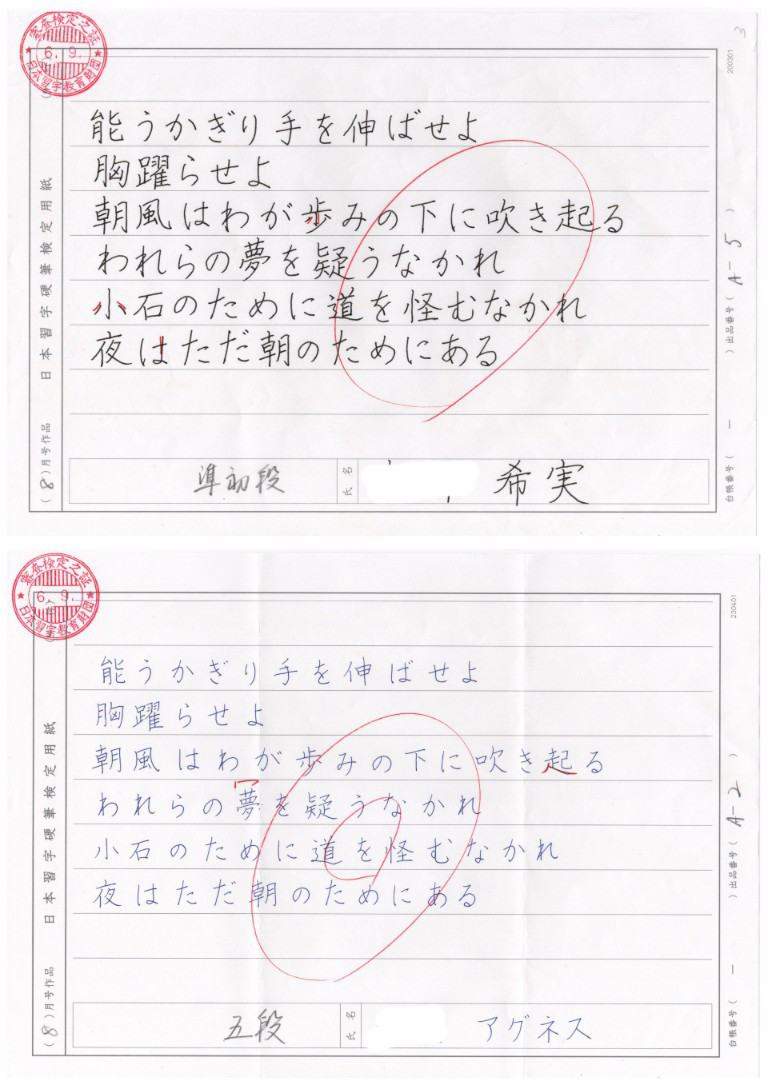 審査検定之証
6.9.
日本習字教育財団
3
200301
能うかぎり手を伸ばせよ
胸躍らせよ
朝風はわが歩みの下に吹き起る
われらの夢を疑うなかれ
小石のために道を怪むなかれ
夜はただ朝のためにある
日本習字硬筆検定用紙
(8)月号作品
準初段
氏名
希実
出品番号(A-5)
台帳番号(ー
審査検定之証
6.9.
日本習字教育財団
230401
能うかぎり手を伸ばせよ
胸躍らせよ
朝風はわが歩みの下に吹き起る
われらの夢を疑うなかれ
小石のために道を怪むなかれ
夜はただ朝のためにある
日本習字硬筆検定用紙
(8)月号作品
五段
氏名
アグネス
出品番号(A-2)
台帳番号(ー